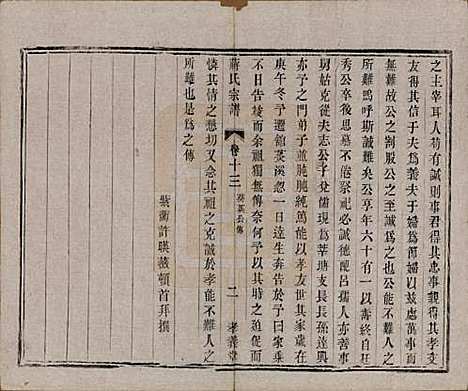 之主宰耳人苟有誠則事君得其忠事親得其孝交
友得其信于夫爲義夫于婦爲節婦于以處萬事而
無難故公之制服公之至誠爲之也然而盡誠人之
所難嗚呼斯誠難矣公享年六十有一以壽終自
秀公卒後思慕不已祭祀必誠德配呂孺人亦善事
舅姑克從夫志公子允儒現爲莘塘支長長孫達興
亦予之門弟子並肫肫純篤能以孝友世其家歲在
庚午冬予遷館葵溪忽一日達生奔告於予曰家乘
不日告竣而余祖獨無傳奈何予以其時之迫促而
蔣氏宗譜 卷十三 傳 二 孝義堂
憐其情之懇切又念其祖之克誠於孝能不難人之
所難也是爲之傳
紫薗許暎薇頓首拜撰